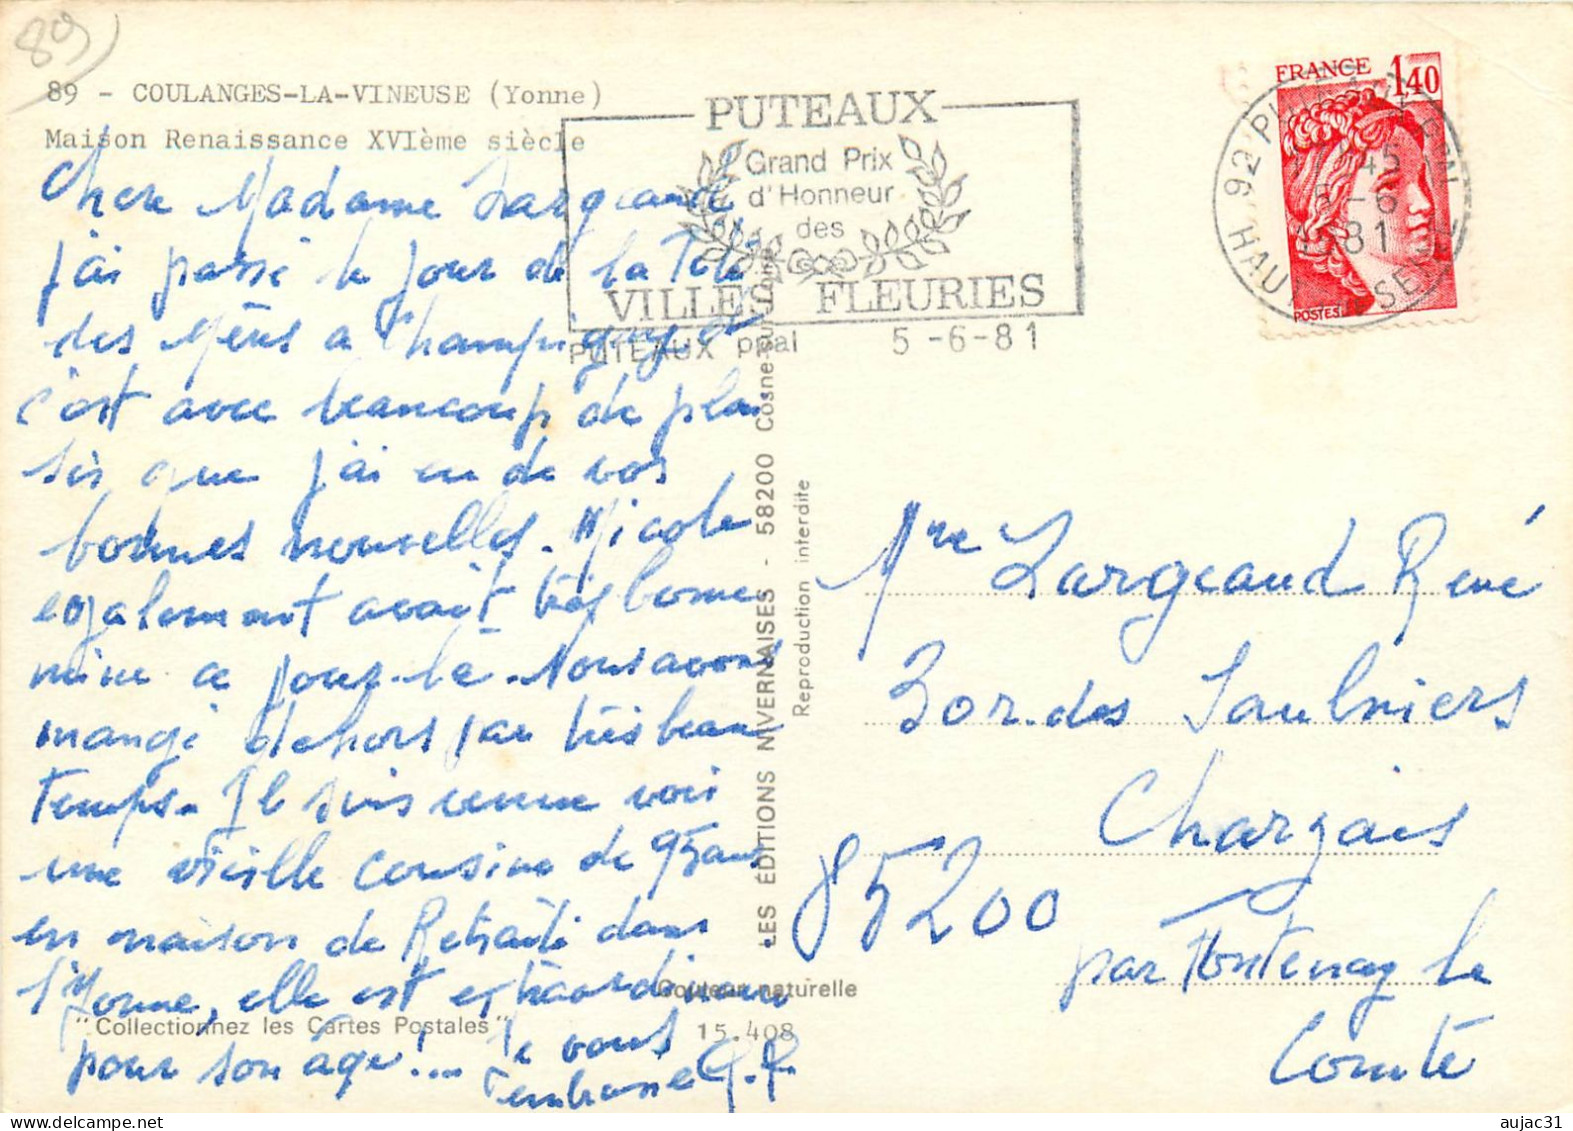 89
89 - COULANGES-LA-VINEUSE (Yonne)
Maison Renaissance XVIème siècle
PUTEAUX
Grand Prix
d'Honneur
des
VILLES FLEURIES
PUTEAUX ppal 5-6-81
FRANCE 1,40
POSTES
92 PUTEAUX
45
5-6
1981
HAUTS DE SEINE
Chere Madame Largeaud
j'ai passé le jour de la Fête
des Mères a Champigny et
c'est avec beaucoup de plai
sir que j'ai eu de vos
bonnes nouvelles. Nicole
egalement avait très bonne
mine ce jour-là. Nous avons
mangé dehors par très beau
temps. Je suis venue voir
une vieille cousine de 95 ans
en maison de Retraite dans
l'Yonne, elle est extraordinaire
pour son âge!... Je vous
embrasse G.P.
LES ÉDITIONS NIVERNAISES - 58200 Cosne-sur-Loire
Reproduction interdite
Couleur naturelle
"Collectionnez les Cartes Postales"
15.408
Mme Largeaud René
3 or. des Saulniers
Chargais
85200
par Fontenay le
Comte
aujac31